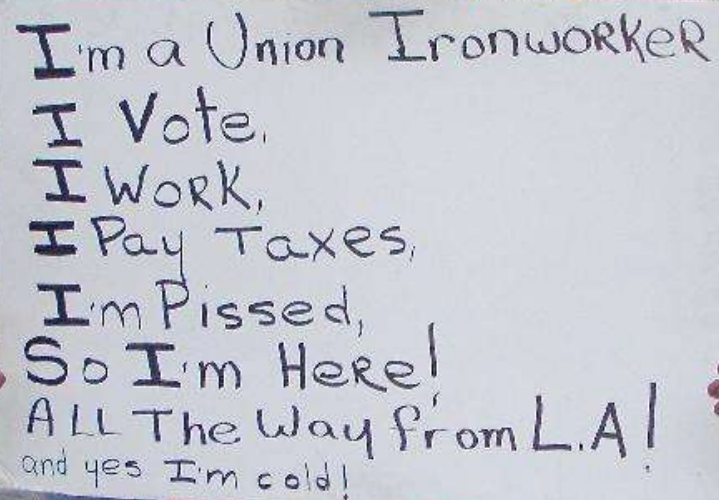 I'm a Union IronwORKeR
I Vote,
I WORK,
I Pay Taxes,
I'm Pissed,
So I'm HeRe!
ALL The Way from L.A!
and yes I'm cold!